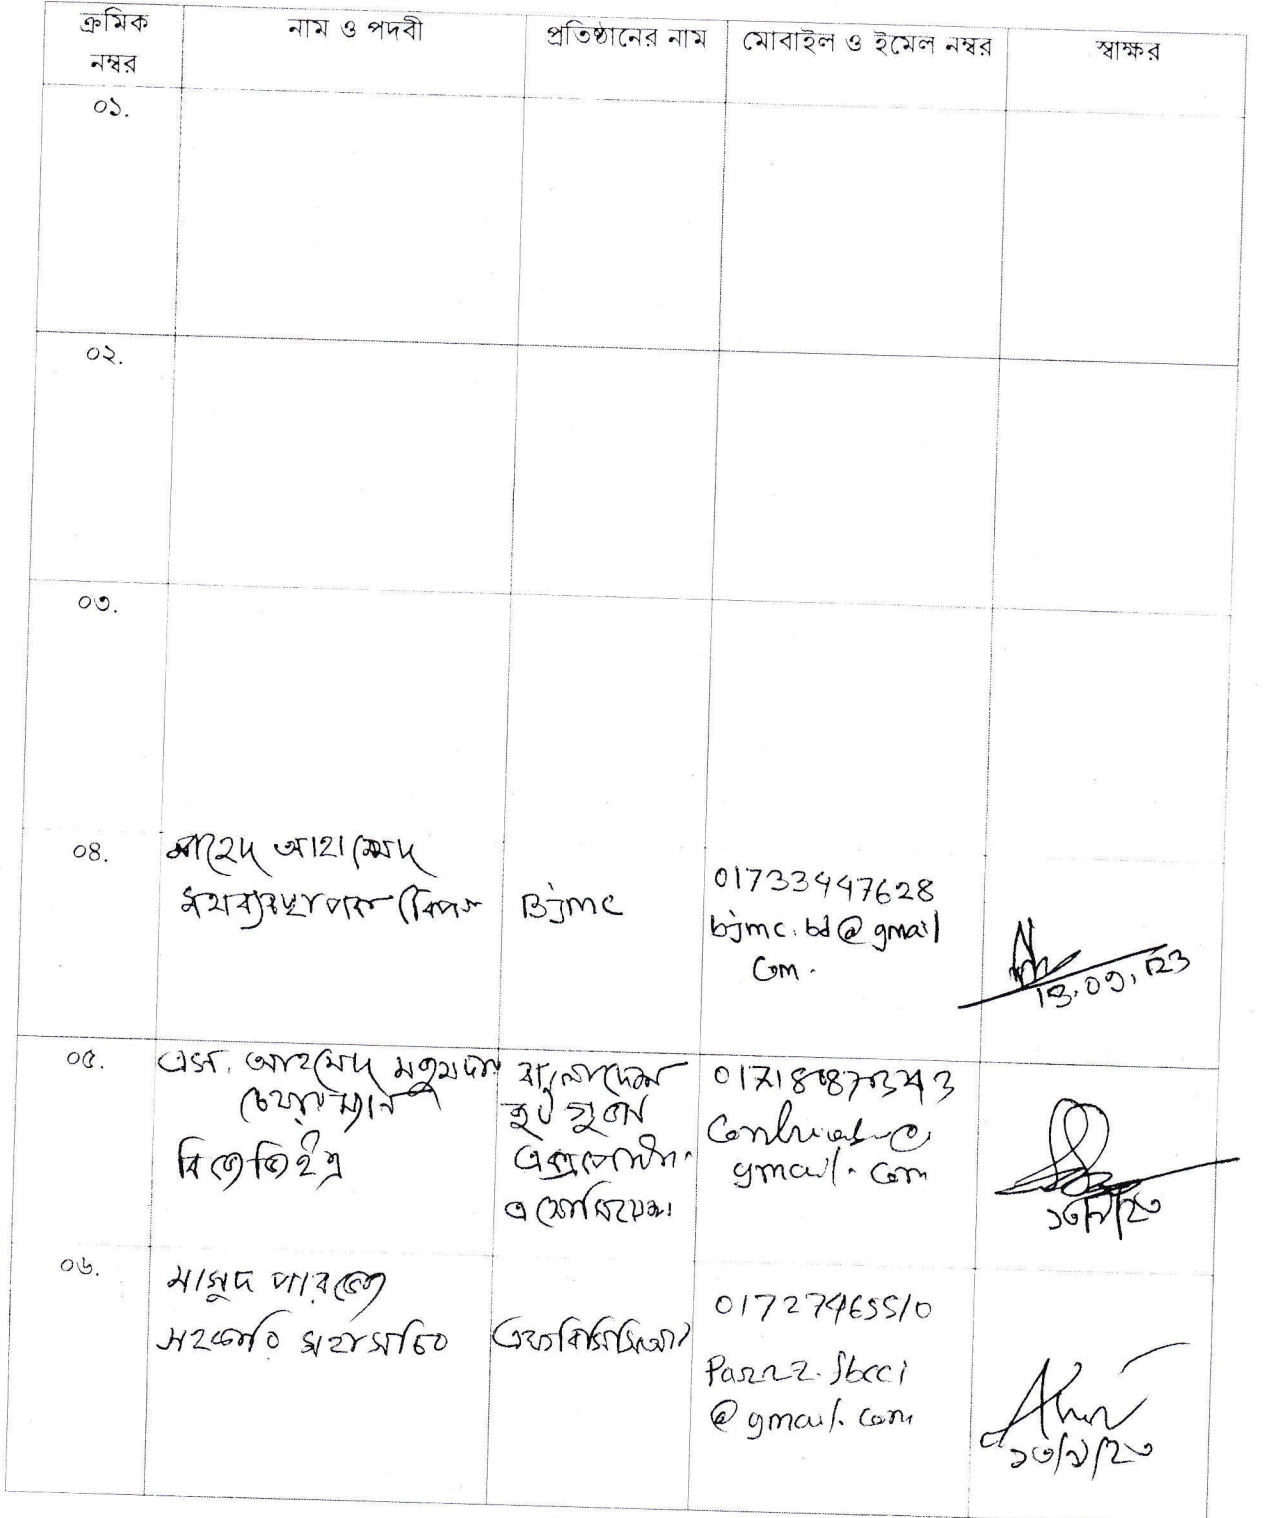 ক্রমিক নম্বর নাম ও পদবী প্রতিষ্ঠানের নাম মোবাইল ও ইমেল নম্বর স্বাক্ষর
০১.
০২.
০৩.
০৪.
আহাম্মেদ
Bjmc
01733447628
bjmc.bd@gmail
com.
13.09.23
০৫.
এস. আহমেদ মজুমদার
চেয়ারম্যান
বিজেজিইএ
বাংলাদেশ
জুট গুডস
এক্সপোর্টার্স
এসোসিয়েশন
gmail.com
১৩/৯/২৩
০৬.
মাসুদ পারভেজ
সহকারি মহাসচিব
এফবিসিসিআই
01727465510
@gmail.com
১৩/৯/২৩